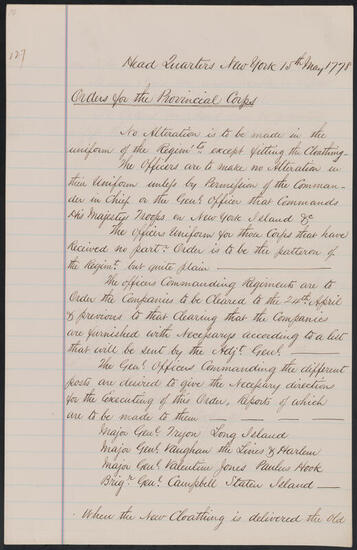 127
Head Quarters New York 15th May 1778
Orders for the Provincial Corps
No Alteration is to be made in the
uniform of the Regimts. except fitting the Cloathing-
The Officers are to make no Alteration in
their Uniform unless by Permission of the Comman-
der in Chief or the Genl. Officer that Commands
His Majesty Troops on New York Island &c
The Officers Uniform for those Corps that have
Recived no part: Order is to be the pattern of
the Regimt. but quite plain —
The officers Commanding Regiments are to
Order the Companies to be Cleared to the 24th. April
& previous to that Clearing that the Companies
are furnished with Necessarys according to a list
that will be sent by the Adjt. Genl. —
The Genl. Officers Commanding the different
posts are desired to give the Necessary direction
for the Executing of this Order, Reports of which
are to be made to them —
Major Genl. Tryon Long Island
Major Genl. Vaughan the Lines & Harlem
Major Genl. Valentine Jones Paulus Hook
Brigr. Genl. Campbell Staten Island —
When the New Cloathing is delivered the Old